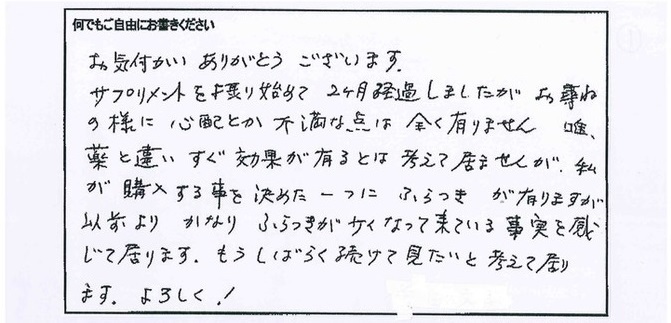 何でもご自由にお書きください
お気付かい ありがとう ございます.
サプリメントを摂り始めて 2ヶ月経過しましたが お尋ね
の様に 心配とか 不満な点は 全く有りません 唯、
薬と違い すぐ 効果が有るとは 考えて居ませんが、私
が 購入する事を決めた一つに ふらつき が有りますが
以前より かなり ふらつきが少くなって来ている事実を感
じて居ります. もうしばらく続けて見たいと考えて居り
ます. よろしく!